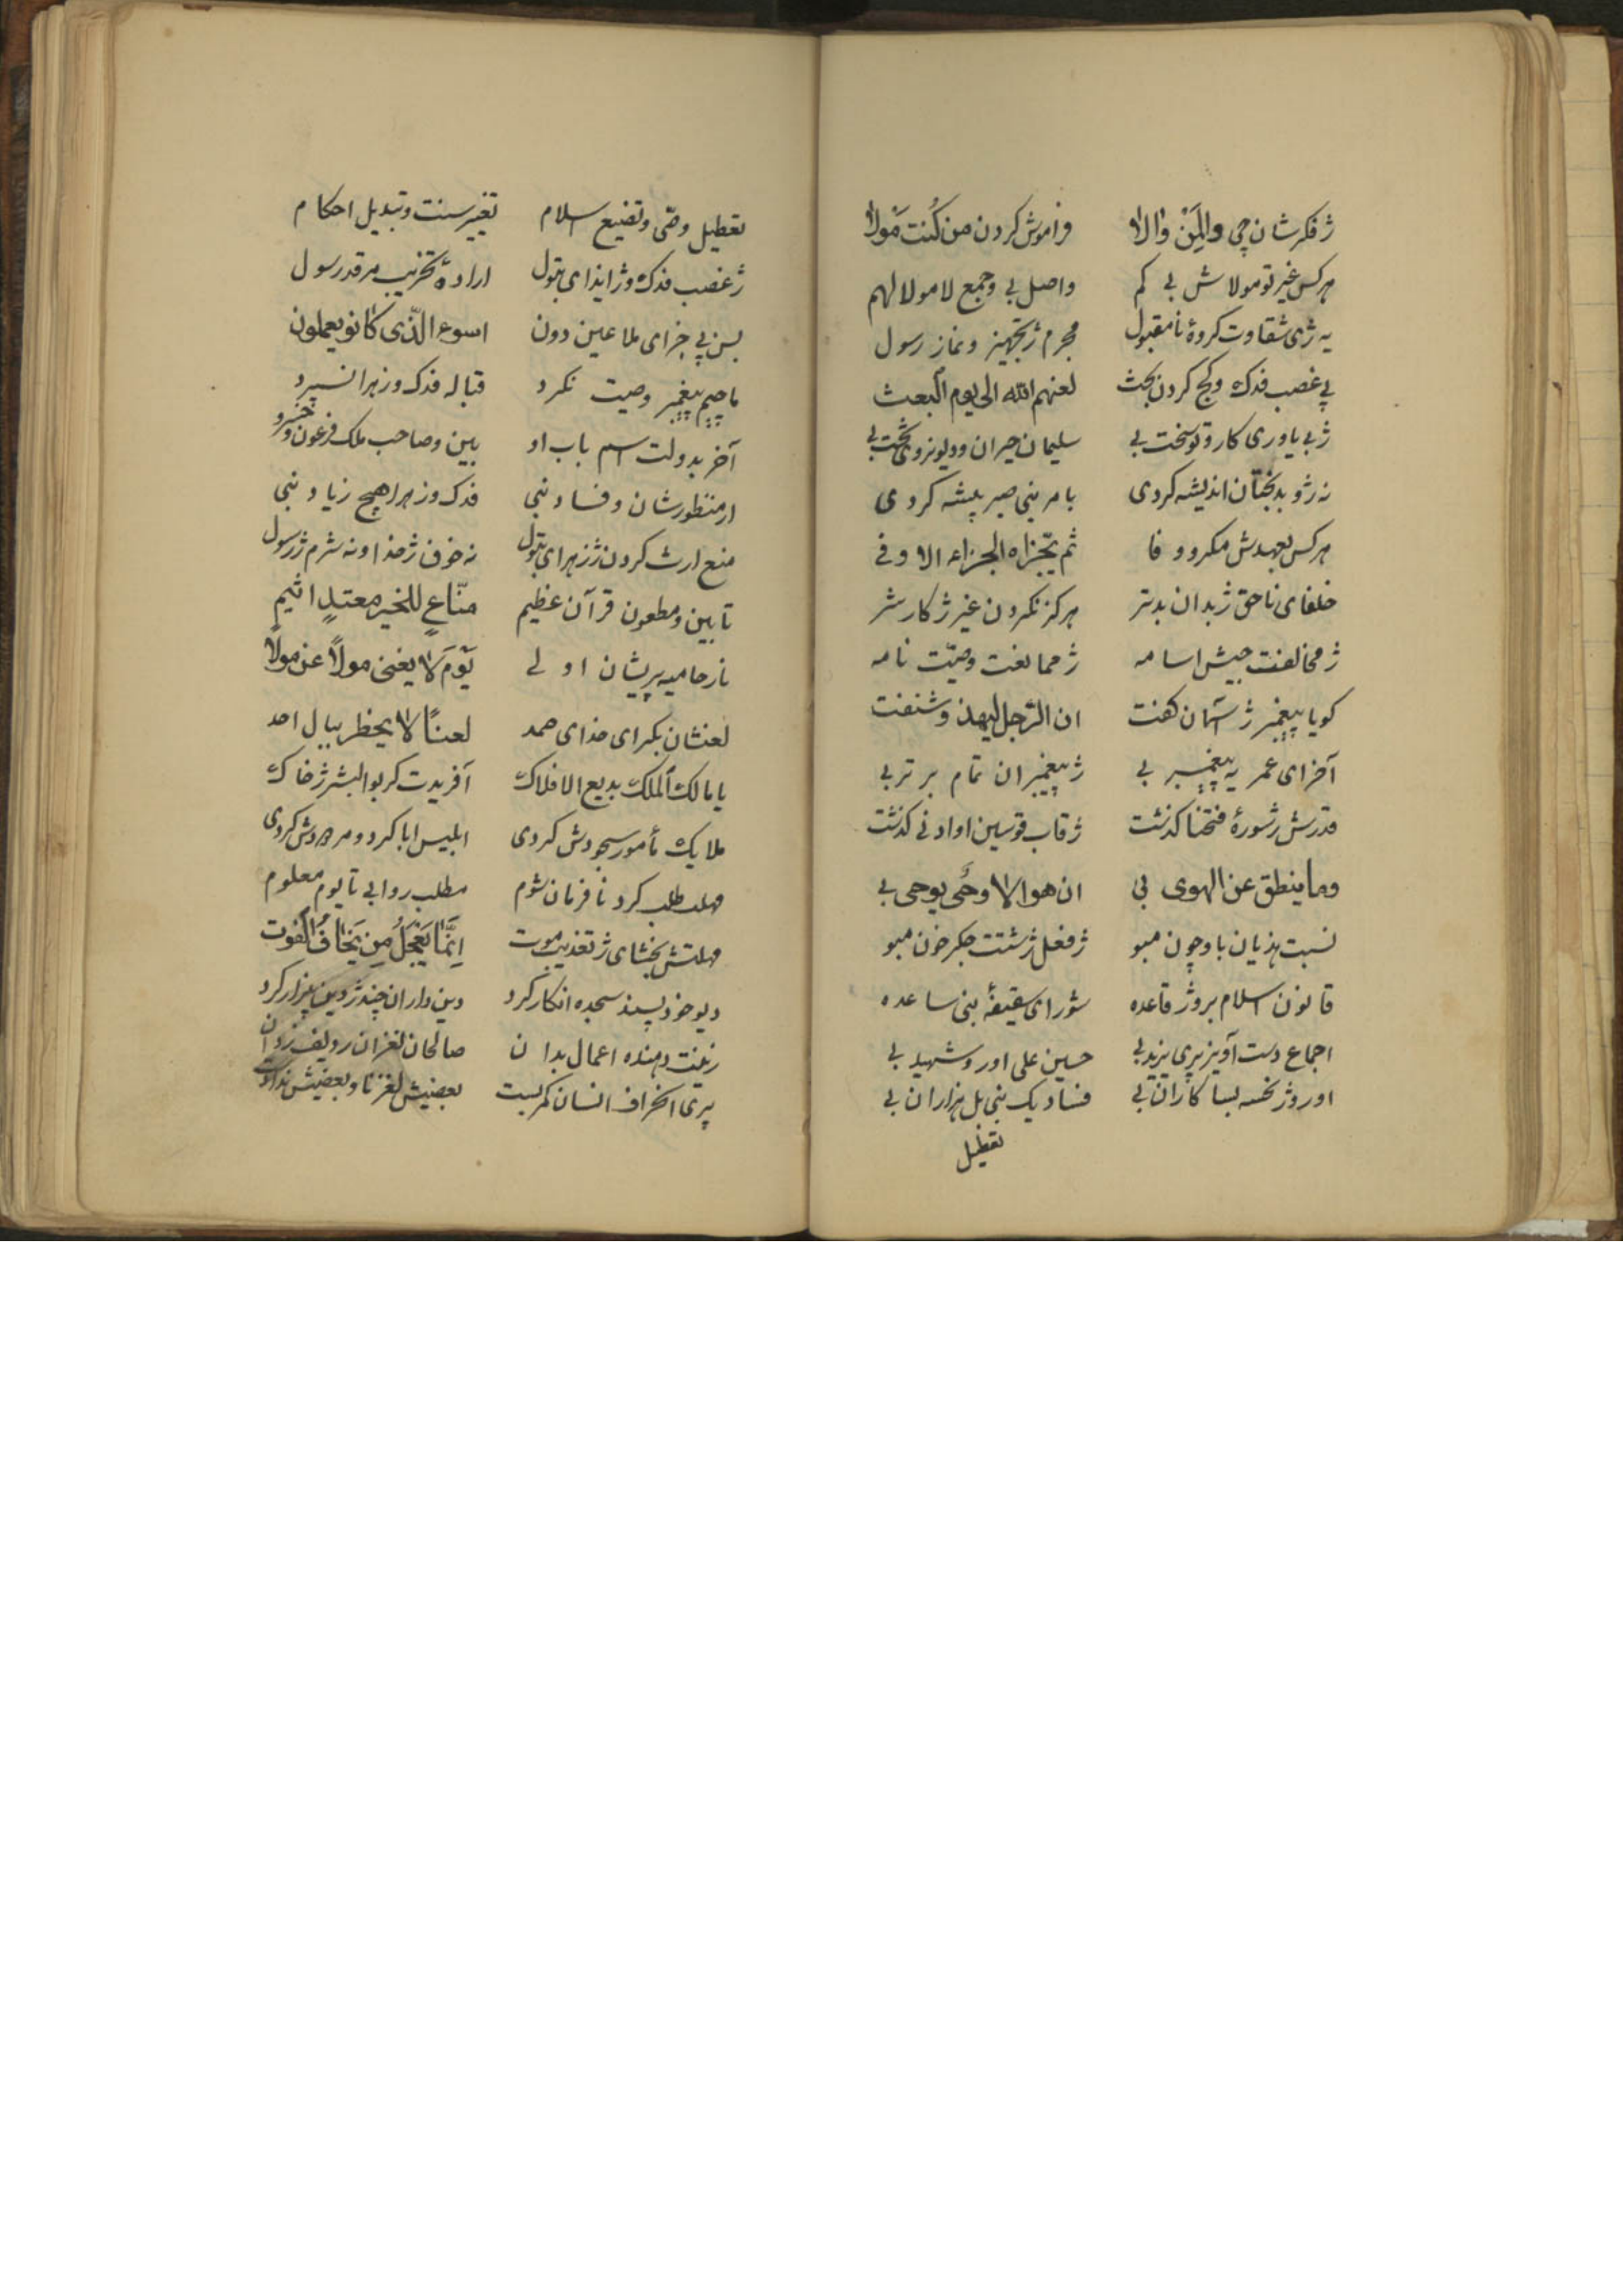 ژ فکرشان چی وال من والاا فراموش کردن من کنت مولا
هرکس غیر تو مولاش بی کم واصل بی و جمع لا مولا لهم
یه ژی شقاوت کروهٔ نامقبول محرم ژ تجهیز و نماز رسول
پی غصب فدک و کج کردن بحث لعنهم الله الی یوم البعث
ژ بی یاوری کار و تو سخت بی سلیمان حیران و دیو نروی تخت بی
نه ژو بدبختان اندیشه کردی بامر نبی صبر پیشه کردی
هرکس بعهدش مکرو وفا ثم یجزاه الجزاء الاوفی
خلفای ناحق ژ بدان بدتر هرکز نکردن غیر ژ کار شر
ژ مخالفت جیش اسامه ژ ممانعت وصیت نامه
کویا پیغمبر ژ آسمان کفت ان الرجل لیهذ و شنفت
آخر ای عمر یه پیغمبر بی ژ پیغمبران تمام برتر بی
قدرش ژ سورهٔ فتحنا کذشت ژ قاب قوسین او ادنی کذشت
وما ینطق عن الهوی بی ان هو الا وحی یوحی بی
نسبت هذیان باو چون مبو ژ فعل ژشتت جکر خون مبو
قانون اسلام بروژ قاعده شورای سقیفهٔ بنی ساعده
اجماع دست آویز پری یزید بی حسین علی اوروشهید بی
اوروژ نحسه بسا کاران بی فساد یک نی بل هزاران بی
تعطیل
تعطیل وصی و تضیع اسلام تغییر سنت و تبدیل احکام
ژ غصب فدک و ژ ایذای بتول ارادهٔ تخریب مرقد رسول
بسن پی جزای ملاعین دون اسوء الذی کانو یعملون
ماچیم پیغمبر وصیت نکرد قباله فدک و زهرا نسپرد
آخر بدولت اسم باب او بین و صاحب ملک فرعون و خسرو
ار منظورشان و فساد نبی فدک و زهرا هیچ زیاد نبی
منع ارث کردن ژ زهرای بتول نه خوف ژ خدا و نه شرم ژ رسول
تا بین و مطعون قرآن عظیم مناع للخیر معتد اثیم
نازحامیه پریشان اولی یوم لا یغنی مولا عن مولا
لعنشان بکرای خدای صمد لعنا لا یخطر ببال احد
یا مالک الملک بدیع الافلاک آفریدت کر بوالبشر ژ خاک
ملایک مأمور سجودش کردی ابلیس ابا کرد و مردودش کردی
مهلت طلب کرد نافرمان شوم مطلب روا بی تا یوم معلوم
مهلتش بخشای ژ تعذیب موت انما یعجل من یخاف الفوت
دیو خودپسند سجده انکار کرد دین داران چند ژ دین بیزار کرد
زینت دهنده اعمال بدان صالحان لغزان
پری انحراف انسان کمر بست بعضیش لغزنا و بعضیش